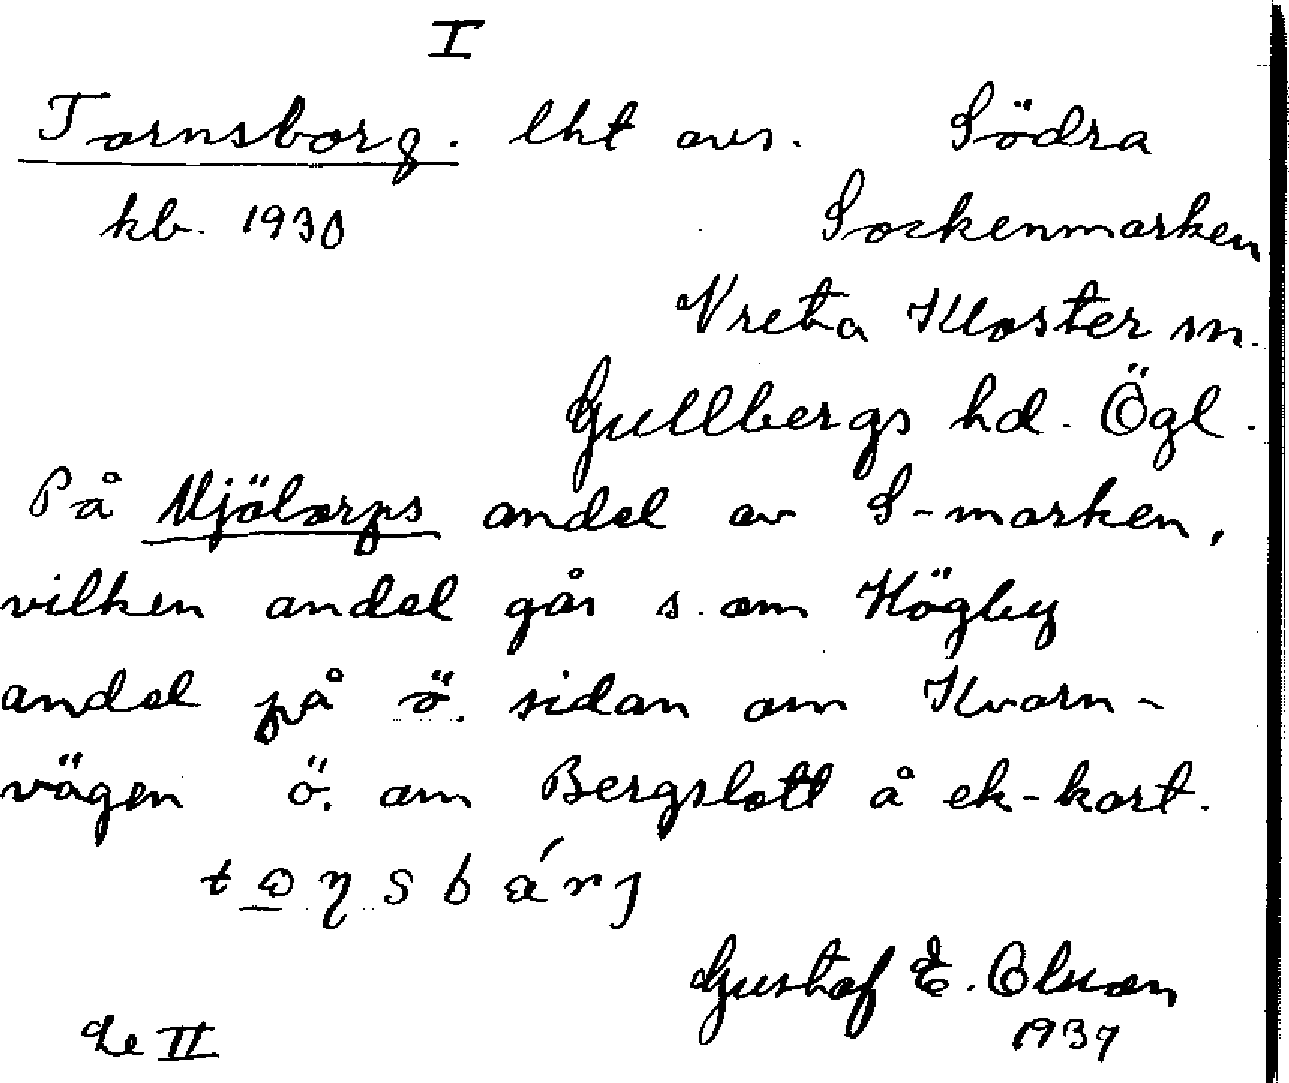 I
Tornsborg. lht avs. Södra
kb. 1930 Sockenmarken
Vreta Kloster sn.
Gullbergs hd. Ögl.
På Mjölorps andel av S-marken,
vilken andel går s. om Högby
andel på ö. sidan om Kvarn-
vägen ö. om Bergslott å ek-kart.
Gustaf E. Olsson
1937
Se II